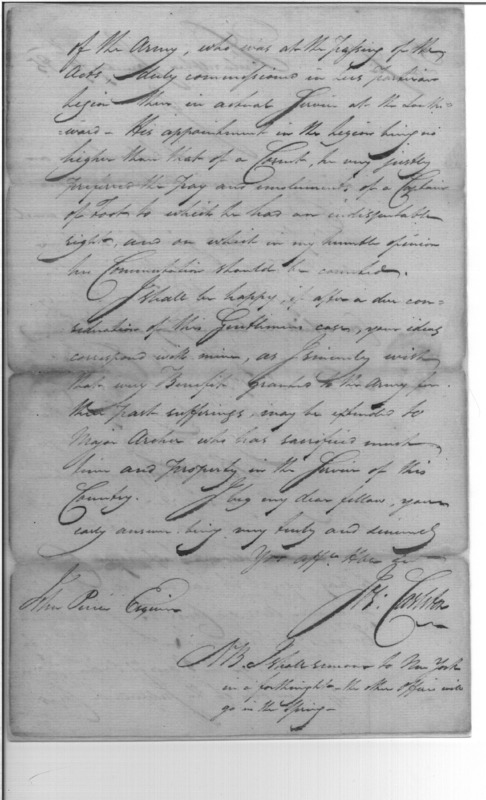 of the Army, who was at the passing of the
Acts, duly commissioned in Lees Partizan
Legion then in actual Service at the South-
ward - His appointment in the Legion being no
higher than that of a Cornet, he very justly
preferred the pay and emoluments of a Captain
of Foot to which he had an indisputable
right, and on which in my humble opinion
his Commutation should be counted.
I shall be happy, if after a due con-
sideration of this Gentlemans case, your ideas
correspond with mine, as I sincerely wish
that every Benefit granted to the Army for
their past sufferings, may be extended to
Major Archer who has sacrificed much
time and property in the Service of this
Country. I beg my dear fellow, your
early answer being very truly and sincerely
Yor affe. Hble Sr
Js: Carleton
John Pierce Esquire
NB. I shall remove to New York
in a forthnight - the other Office will
go in the Spring -